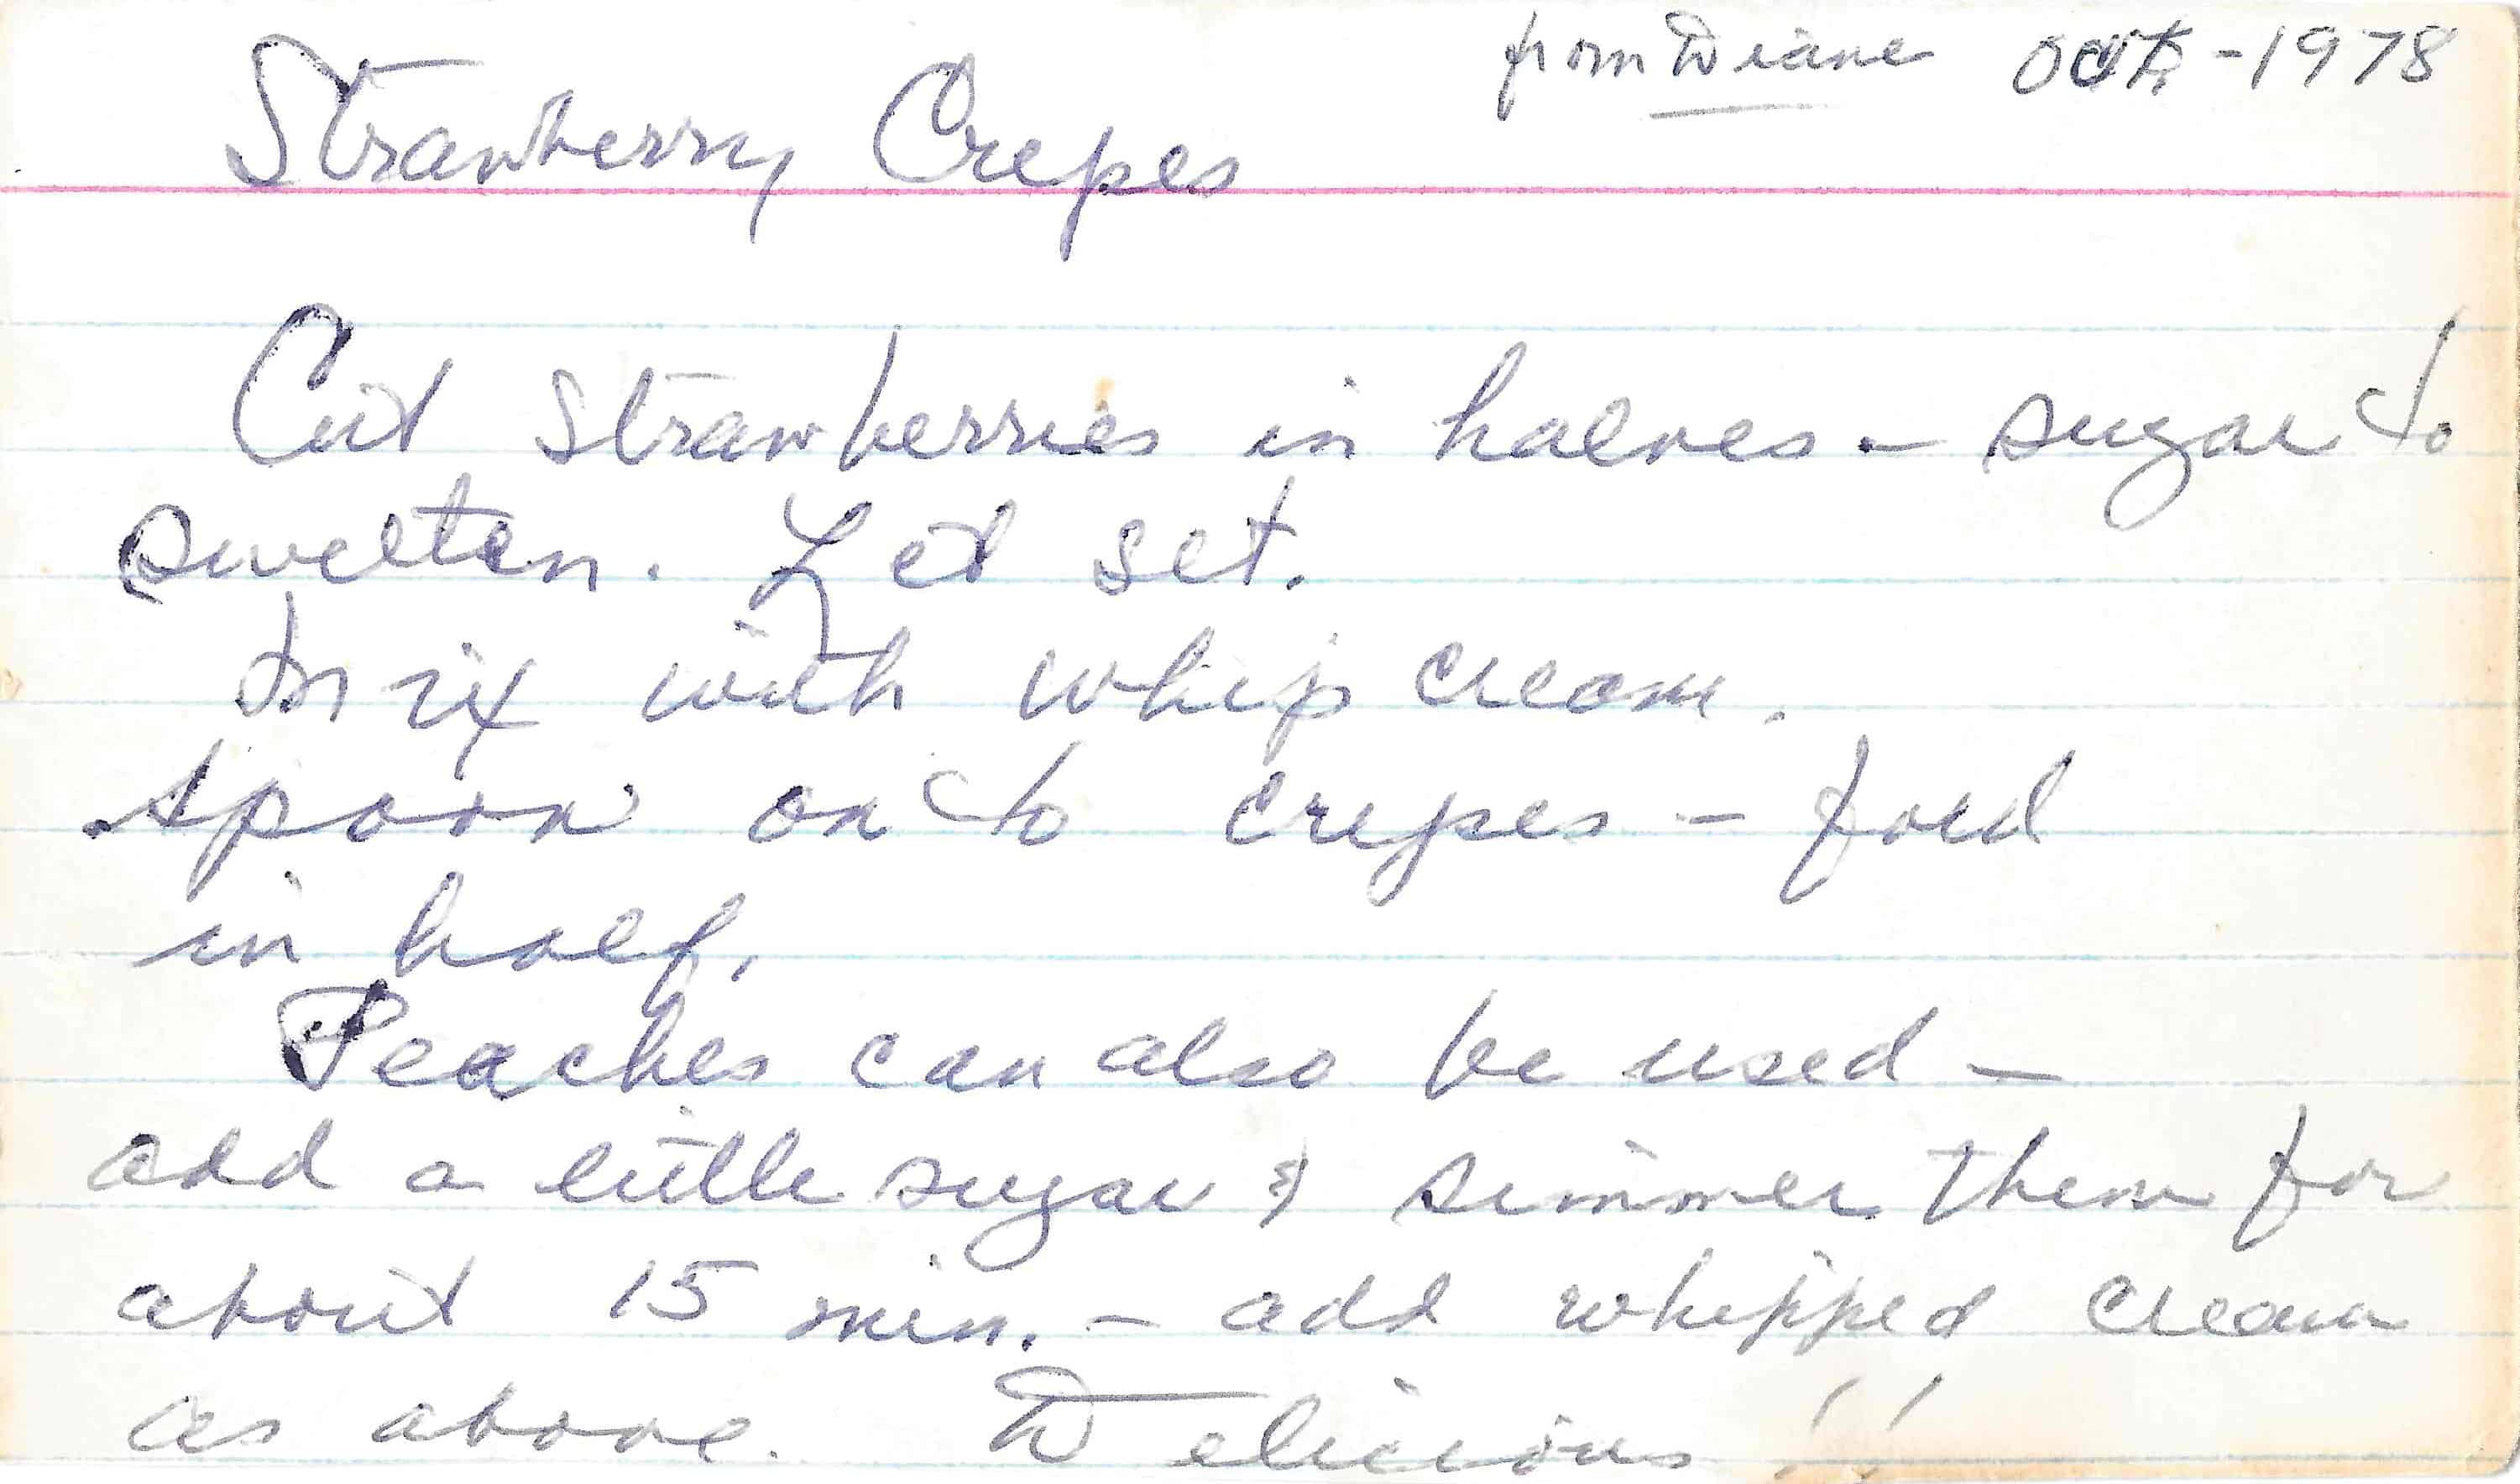 from Diane Oct. -1978
Strawberry Crepes
Cut strawberries in halves - sugar to
sweeten. Let set.
Mix with whip cream.
Spoon on to crepes - fold
in half.
Peaches can also be used -
add a little sugar & simmer them for
about 15 min. - add whipped cream
as above. Delicious!!